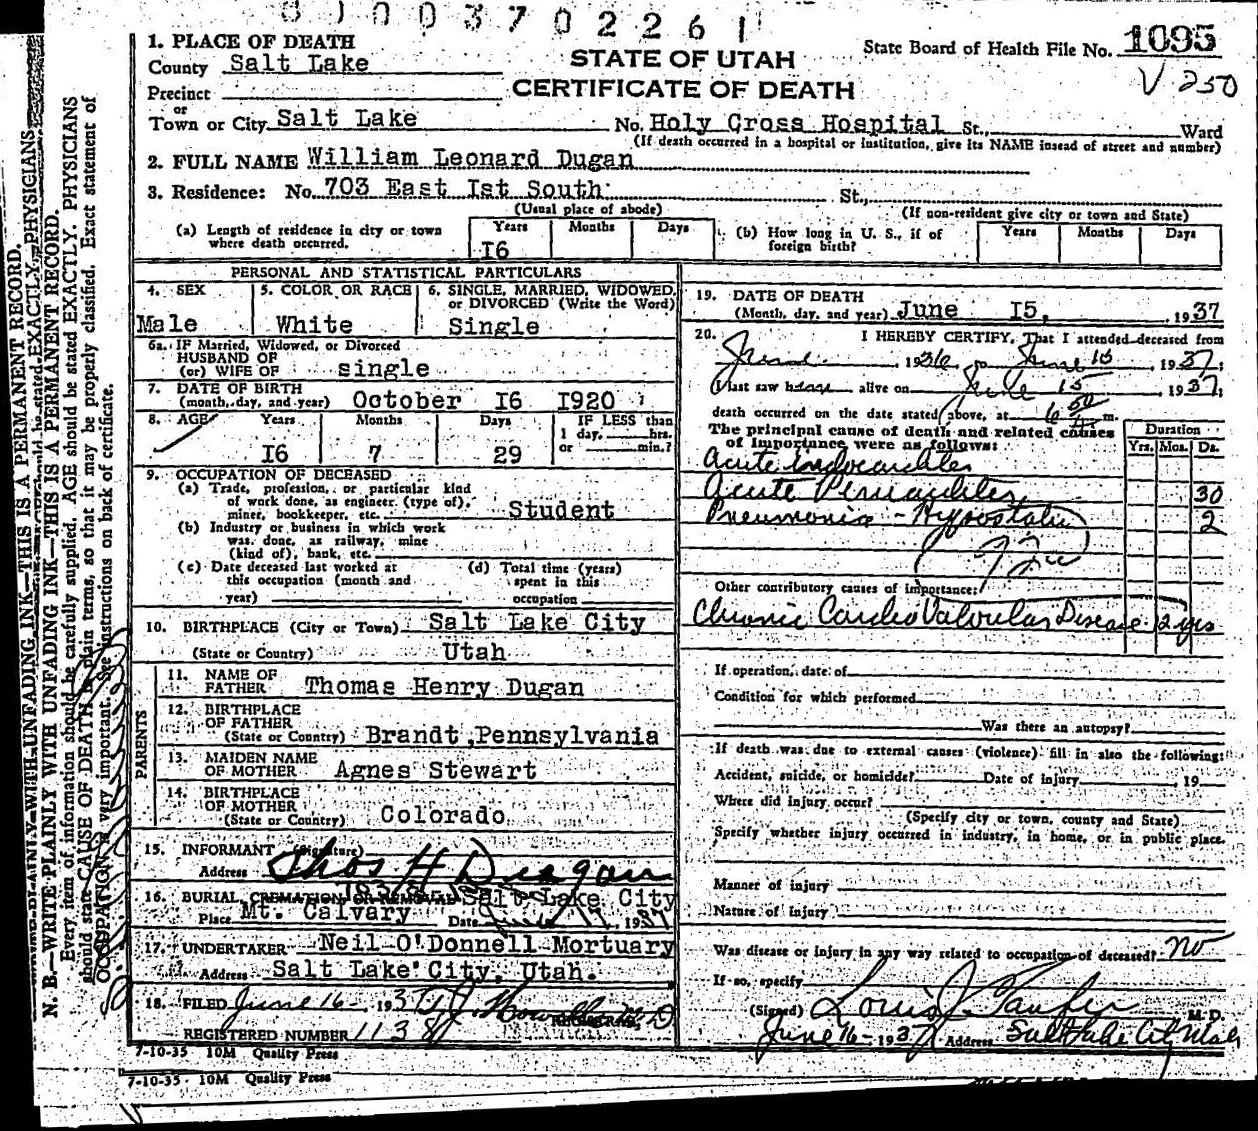 0 1 0 0 3 7 0 2 2 6 1
1. PLACE OF DEATH
County Salt Lake
Precinct
or
Town or City Salt Lake
STATE OF UTAH
CERTIFICATE OF DEATH
State Board of Health File No. 1095
V 250
No. Holy Cross Hospital St., Ward
(If death occurred in a hospital or institution, give its NAME insead of street and number)
2. FULL NAME William Leonard Dugan
3. Residence: No. 703 East Ist South St.,
(Usual place of abode)
(If non-resident give city or town and State)
(a) Length of residence in city or town
where death occurred.
Years Months Days
I6
(b) How long in U. S., if of
foreign birth?
Years Months Days
PERSONAL AND STATISTICAL PARTICULARS
4. SEX
Male
5. COLOR OR RACE
White
6. SINGLE, MARRIED, WIDOWED,
or DIVORCED (Write the Word)
Single
6a. IF Married, Widowed, or Divorced
HUSBAND OF
(or) WIFE OF single
7. DATE OF BIRTH
(month, day, and year) October I6 I920
8. AGE Years Months Days
I6 7 29
IF LESS than
1 day, hrs.
or min.?
9. OCCUPATION OF DECEASED
(a) Trade, profession, or particular kind
of work done, as engineer (type of),
miner, bookkeeper, etc. Student
(b) Industry or business in which work
was done, as railway, mine
(kind of), bank, etc.
(c) Date deceased last worked at
this occupation (month and
year)
(d) Total time (years)
spent in this
occupation
10. BIRTHPLACE (City or Town) Salt Lake City
(State or Country) Utah
PARENTS
11. NAME OF
FATHER Thomas Henry Dugan
12. BIRTHPLACE
OF FATHER
(State or Country) Brandt, Pennsylvania
13. MAIDEN NAME
OF MOTHER Agnes Stewart
14. BIRTHPLACE
OF MOTHER
(State or Country) Colorado
15. INFORMANT (Signature)
Address Thos H Dugan
16. BURIAL, CREMATION OR REMOVAL Salt Lake City
Place Mt. Calvary Date June 17, 1937
17. UNDERTAKER Neil O'Donnell Mortuary
Address Salt Lake City, Utah.
18. FILED June 16- 1937
REGISTRAR
REGISTERED NUMBER 1138
7-10-35 10M Quality Press
7-10-35 10M Quality Press
19. DATE OF DEATH
(Month, day, and year) June I5, 1937
20. I HEREBY CERTIFY, That I attended deceased from
June 1936 to June 15 1937;
I last saw him alive on June 15 1937;
death occurred on the date stated above, at 6 50 m.
The principal cause of death and related causes
of importance were as follows:
Duration
Yrs. Mos. Ds.
Acute endocarditis
Acute Pericarditis 30
Pneumonia - Hypostatic 2
Other contributory causes of importance:
Chronic Cardio Valvular Disease 2 yrs
If operation, date of
Condition for which performed
Was there an autopsy?
If death was due to external causes (violence) fill in also the following:
Accident, suicide, or homicide? Date of injury 19
Where did injury occur?
(Specify city or town, county and State)
Specify whether injury occurred in industry, in home, or in public place.
Manner of injury
Nature of injury
Was disease or injury in any way related to occupation of deceased? no
If so, specify
(Signed) Louis J. Taufer M. D.
June 16- 1937 Address Salt Lake City Utah
N. B.—WRITE PLAINLY WITH UNFADING INK—THIS IS A PERMANENT RECORD.
Every item of information should be carefully supplied. AGE should be stated EXACTLY. PHYSICIANS
should state CAUSE OF DEATH in plain terms, so that it may be properly classified. Exact statement of
OCCUPATION is very important. See instructions on back of certificate.